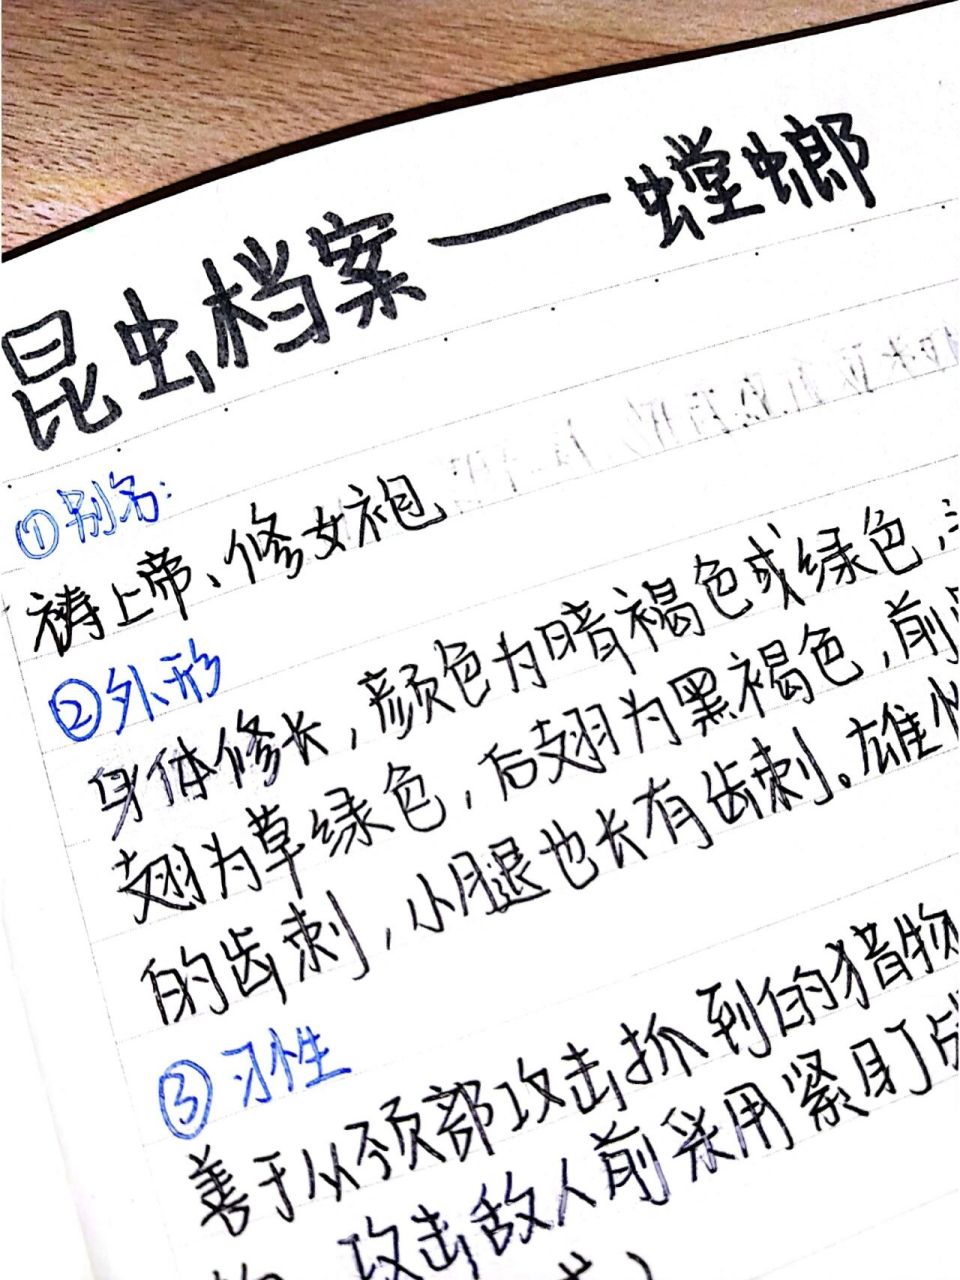 昆虫档案——螳螂
①别名:
祷上帝、修女袍
②外形
身体修长,颜色为暗褐色或绿色,
翅为草绿色,后翅为黑褐色,前
的齿刺,小腿也长有齿刺。雄性
③习性
善于从颈部攻击抓到的猎物
攻击敌人前采用紧盯